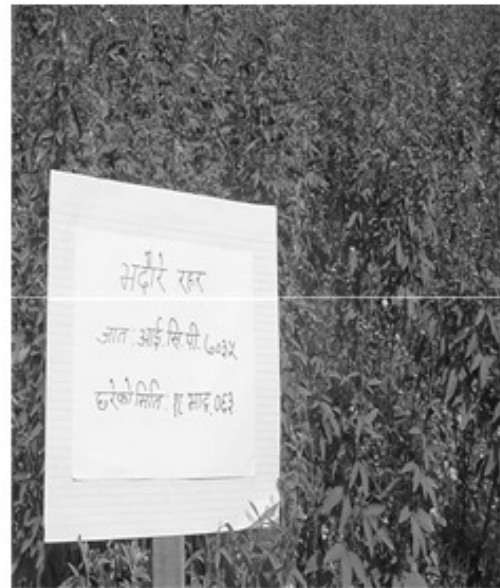 भदौरे रहर
जात : आई.सि.पी. ७०३५
छरेको मिति : १८ भाद्र, ०६३